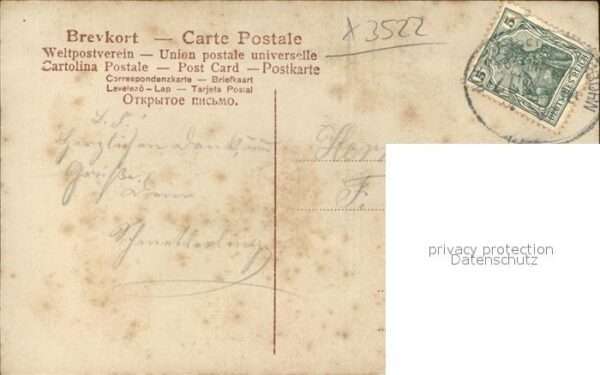 Brevkort — Carte Postale
Weltpostverein — Union postale universelle
Cartolina Postale — Post Card — Postkarte
Correspondenzkarte — Briefkaart
Levelező-Lap — Tarjeta Postal
Открытое письмо.
x 3522
5 5
DEUTSCHES REICH
L. F.!
Herzlichen Dank u.
Grüße
Dein
Schmetterling
F.
privacy protection
Datenschutz